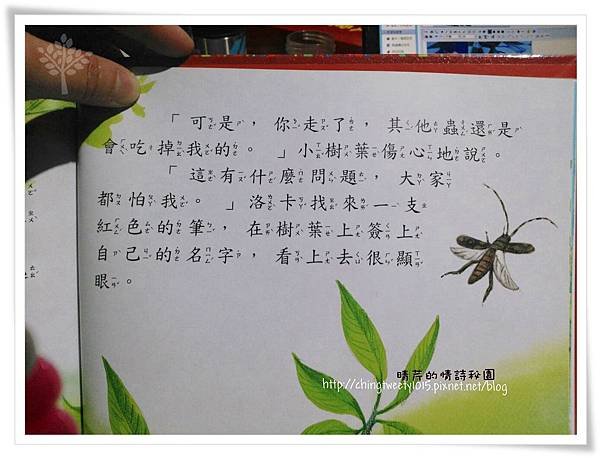 「可是，你走了，其他蟲還是
會吃掉我的。」小樹葉傷心地說。
「這有什麼問題，大家
都怕我。」洛卡找來一支
紅色的筆，在樹葉上簽上
自己的名字，看上去很顯
眼。
晴芹的情詩秘園
http://chingtweety1015.pixnet.net/blog